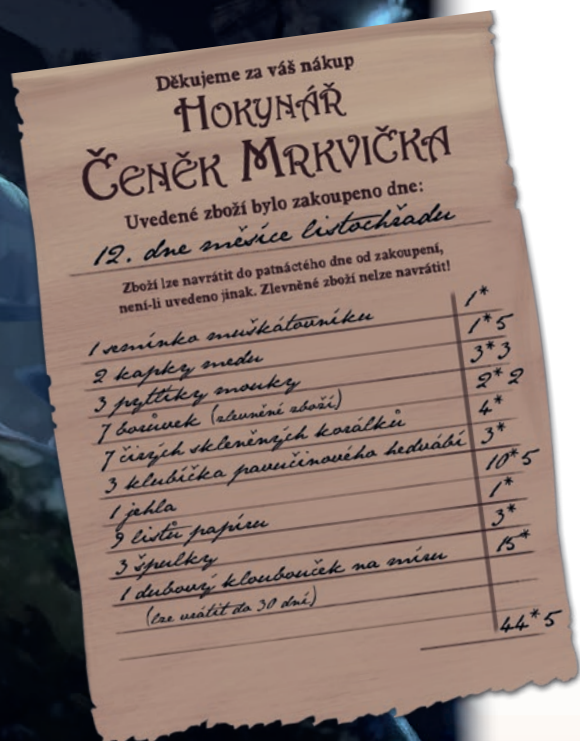 Děkujeme za váš nákup
Hokynář
Čeněk Mrkvička
Uvedené zboží bylo zakoupeno dne:
12. dne měsíce listochřadu
Zboží lze navrátit do patnáctého dne od zakoupení,
není-li uvedeno jinak. Zlevněné zboží nelze navrátit!
1 semínko muškátovníku 1*
2 kapky medu 1*5
3 pytlíky mouky 3*3
7 borůvek (zlevněné zboží) 2*2
7 čirých skleněných korálků 4*
3 klubíčka pavučinového hedvábí 3*
1 jehla 10*5
9 listů papíru 1*
3 špulky 3*
1 dubový kloubouček na míru 15*
(lze vrátit do 30 dní)
44*5